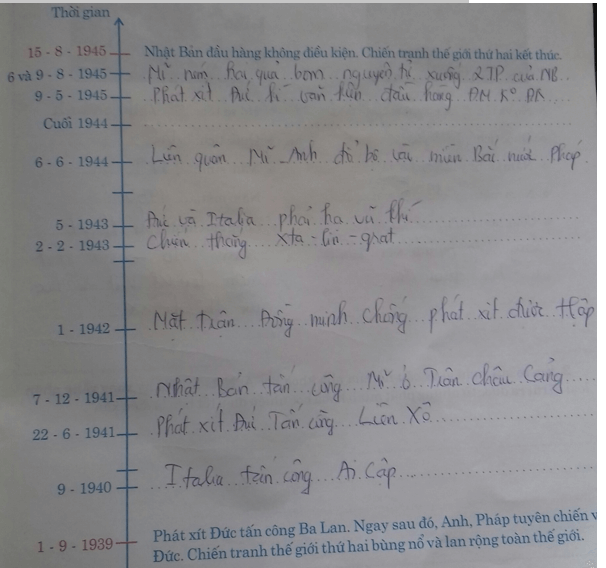 Thời gian
15 - 8 - 1945 Nhật Bản đầu hàng không điều kiện. Chiến tranh thế giới thứ hai kết thúc.
6 và 9 - 8 - 1945 Mĩ ném hai quả bom nguyên tử xuống 2TP của NB
9 - 5 - 1945 Phát xít Đức kí văn kiện đầu hàng ĐM Kº ĐK
Cuối 1944
6 - 6 - 1944 Liên quân Mĩ - Anh đổ bộ vào miền Bắc nước Pháp
5 - 1943 Đức và Italia phải hạ vũ khí
2 - 2 - 1943 Chiến thắng Xta - lin - grat
1 - 1942 Mặt trận Đồng minh chống phát xít được thành lập
7 - 12 - 1941 Nhật Bản tấn công Mĩ ở Trân Châu Cảng
22 - 6 - 1941 Phát xít Đức Tấn công Liên Xô
9 - 1940 Italia tấn công Ai Cập
1 - 9 - 1939 Phát xít Đức tấn công Ba Lan. Ngay sau đó, Anh, Pháp tuyên chiến v
Đức. Chiến tranh thế giới thứ hai bùng nổ và lan rộng toàn thế giới.